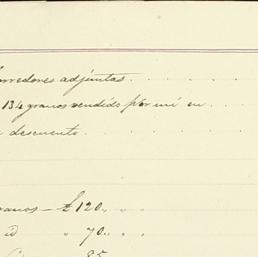 corredores adjuntas . . . . .
134 granos vendids por mi en . . .
descuento . . . . .
anos — £ 120 „ „ „
id „ 70 „ „
85